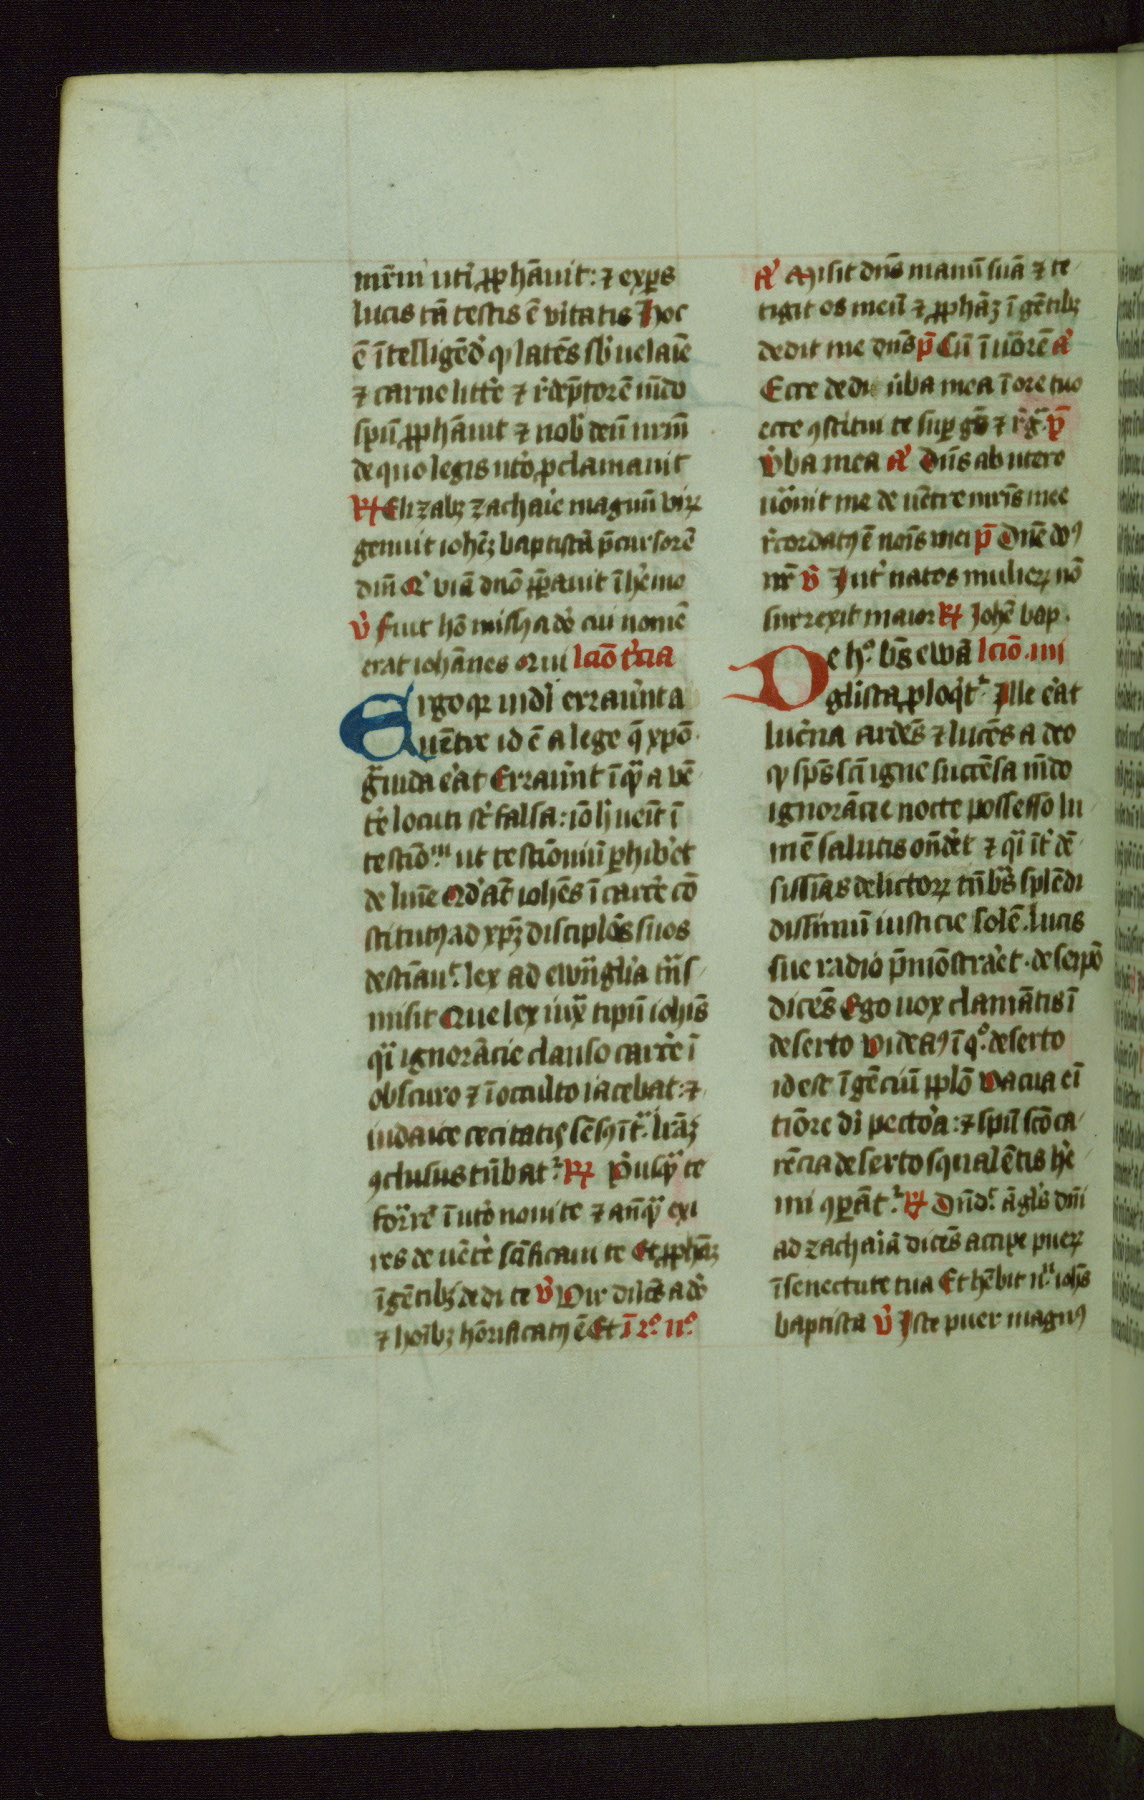 mr̄ni uti ꝓphāuit: ⁊ exꝑs
lucis tā testis ē vitatis Hoc
ē ītelligēdꝰ ꝙ latēs sb̓ uelaīe
⁊ carne litt̓e ⁊ r̓dēptorē mūdo
spū ꝓphāuit ⁊ nob̓ deū nr̄m
de quo legis ut̓o ꝓclamauit
R̸ Elizabꝫ zachaie magnū virꝫ
genuit iohēꝫ baptistā p̄cursorē
dn̄i Q̓ viā dn̄o p̄parauit ī h̓emo
v̓ Fuit hō missꝰ a dō cui nomē
erat iohānes Qui lcīo t̓cia
Ergo qꝛ iudī erraūnt a
uētre id ē a lege q̄ xpō
g̓uida ēat Erraūnt īqͣ a vē
t̓e locuti st̓ falsa: iō h̓ ueīt ī
testīoᵐ ut testīoniū ꝑhib̓et
de lmīe Qd̓ at̄ iohēs ī carc̓e cō
stitutꝰ ad xpꝫ disciplōs suos
destīauͭ lex ad ewn̄glīa trn̄s
misit Que lex iuxͣ tipū iohīs
qͥ ignorācie clauso carc̓e ī
obscuro ⁊ ī occulto iacebat: ⁊
iudaice cecitatis sēsꝰ ītͣ l̓rāꝫ
ꝯclusus tn̄bat᷑ R̸ P̓usqͣ te
for̄re ī ut̓o noui te ⁊ an̄qͣ exi
res de uēt̓e sc̄ificaui te Et ꝓphāꝫ
ī gētibꝫ dedi te v̓ Vir dilc̄s a dō
⁊ hoībꝫ honrificatꝰ ē Et ī 2º nº
A᷑ Misit dn̄s manū suā ⁊ te
tigit os meū ⁊ ꝓphāꝫ ī gētibꝫ
dedit me dn̄s p̄ Cū īuōrē A᷑
Ecce dedi u̓ba mea ī ore tuo
ecce ꝯstitui te suꝑ gē ⁊ r̓gͣ p̄
V̓ba mea A᷑ Dn̄s ab utero
uōuit me de uētre mr̄is mee
r̓cordatꝰ ē noīs mei p̄ Dn̄e dꝰ
nr̄ v̓ Int̓ natos mulierꝫ nō
surrexit maior R̸ Johē bap
De hº bt̄s ewā lcīo.iiii
glista ꝓloqͥt᷑ Ille ēat
luc̓na ardēs ⁊ lucēs a deo
ꝙ sps̄ sc̄i igne succēsa mūdo
ignorācie nocte possesso lu
mē salutis on̄det ⁊ qͥ īt̓ dē
sissīas delictorꝫ tn̄bs̄ splēdi
dissimū iusticie solē. lucis
sue radio p̄mōstraet. de seipō
dicēs Ego uox clamātis ī
deserto Videaꝰ ī qº deserto
id est ī gēciū ꝓplō Vacua eī
tiōre dī pect̓oa: ⁊ spū scō ca
rēcia deserto squalētis h̓e
mi ꝯꝑāt᷑ R̸ Dn̄d᷑ āglꝰ dn̄i
ad zachaīa dicēs accipe puerꝫ
ī senectute tua Et hēbit nͫ iohīs
baptista v̓ Iste puer magnꝰ